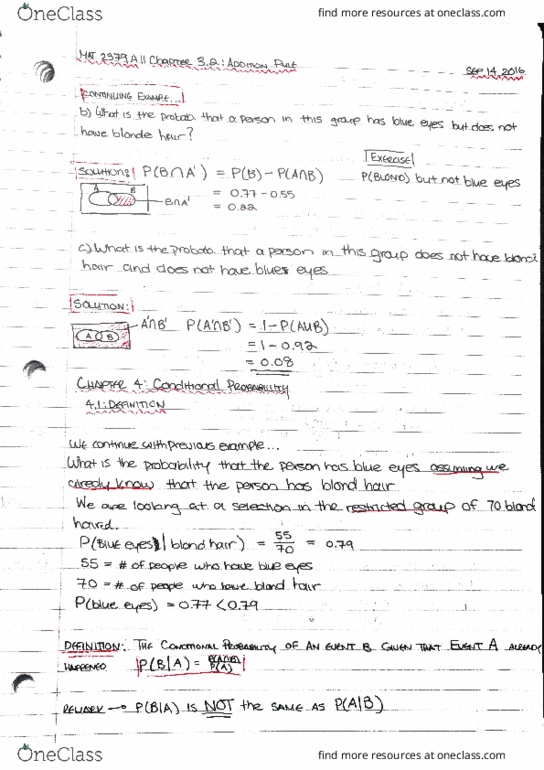 OneClass
find more resources at oneclass.com
MAT 2379 A || Chapter 3.2: ADDITION RULE
SEP 14, 2016
CONTINUING EXAMPLE...
b) What is the probab. that a person in this group has blue eyes but does not
have blonde hair?
Exercise
SOLUTION: P(B∩A') = P(B) - P(A∩B)
P(BLOND) but not blue eyes
A B
= 0.77 - 0.55
B∩A'
= 0.22
c) What is the probab. that a person in this group does not have blond
hair and does not have blue eyes
SOLUTION:
A'∩B' P(A'∩B') = 1 - P(A∪B)
A B
= 1 - 0.92
= 0.08
CHAPTER 4: Conditional PROBABILITY
4.1: DEFINITION
We continue with previous example...
What is the probability that the person has blue eyes assuming we
already know that the person has blond hair
We are looking at a selection in the restricted group of 70 blond
haired.
P(Blue eyes | blond hair) = 55/70 = 0.79
55 = # of people who have blue eyes
70 = # of people who have blond hair
P(blue eyes) = 0.77 < 0.79
DEFINITION: THE CONDITIONAL PROBABILITY OF AN EVENT B GIVEN THAT EVENT A ALREADY
HAPPENED P(B|A) = P(A∩B)/P(A)
REMARK → P(B|A) IS NOT the SAME AS P(A|B)
OneClass
find more resources at oneclass.com